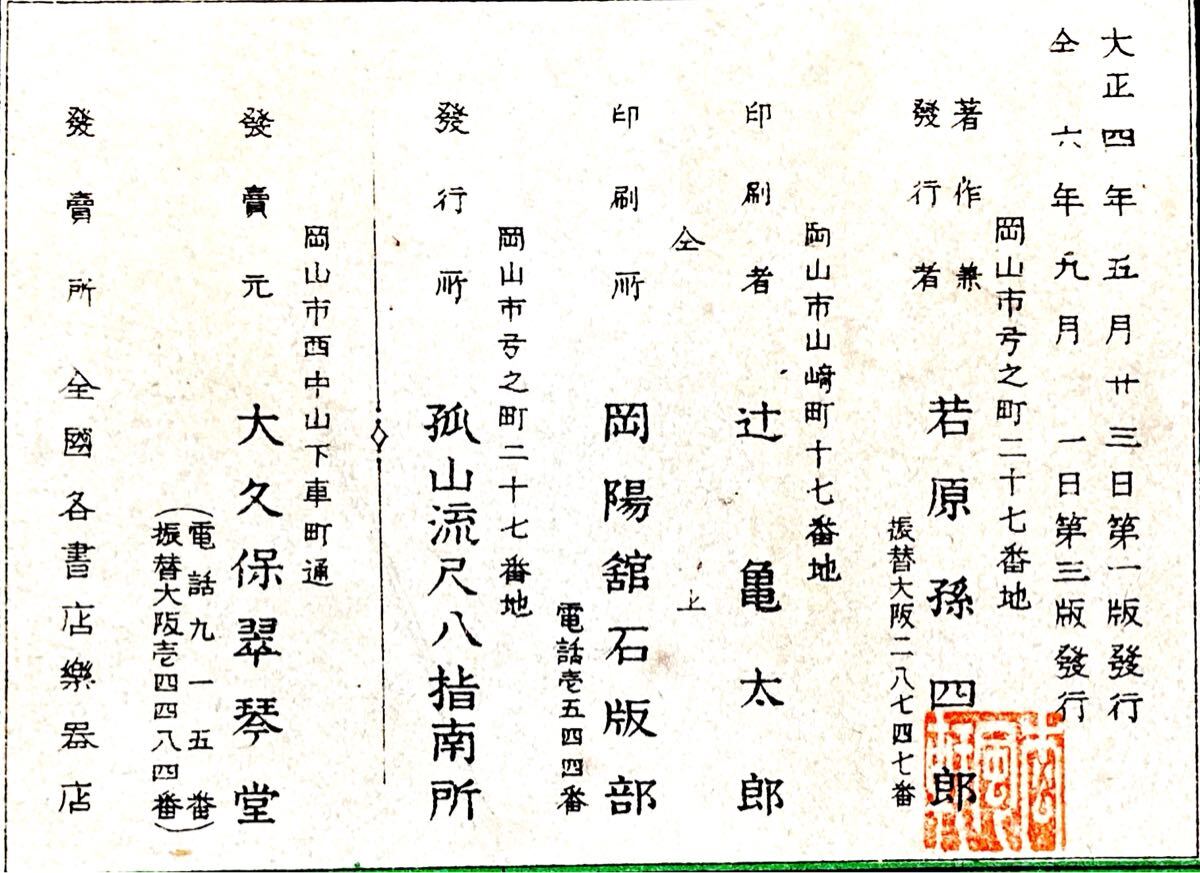 大正四年五月廿三日第一版發行
仝六年九月一日第三版發行
岡山市弓之町二十七番地
著作兼
發行者
若原孫四郎
振替大阪二八七四七番
岡山市山﨑町十七番地
印刷者 辻亀太郎
仝上
印刷所 岡陽舘石版部
電話壱五四四番
岡山市弓之町二十七番地
發行所 孤山流尺八指南所
岡山市西中山下車町通
發賣元 大久保翠琴堂
(電話九一五番
振替大阪壱四四八四番)
發賣所 全國各書店樂器店